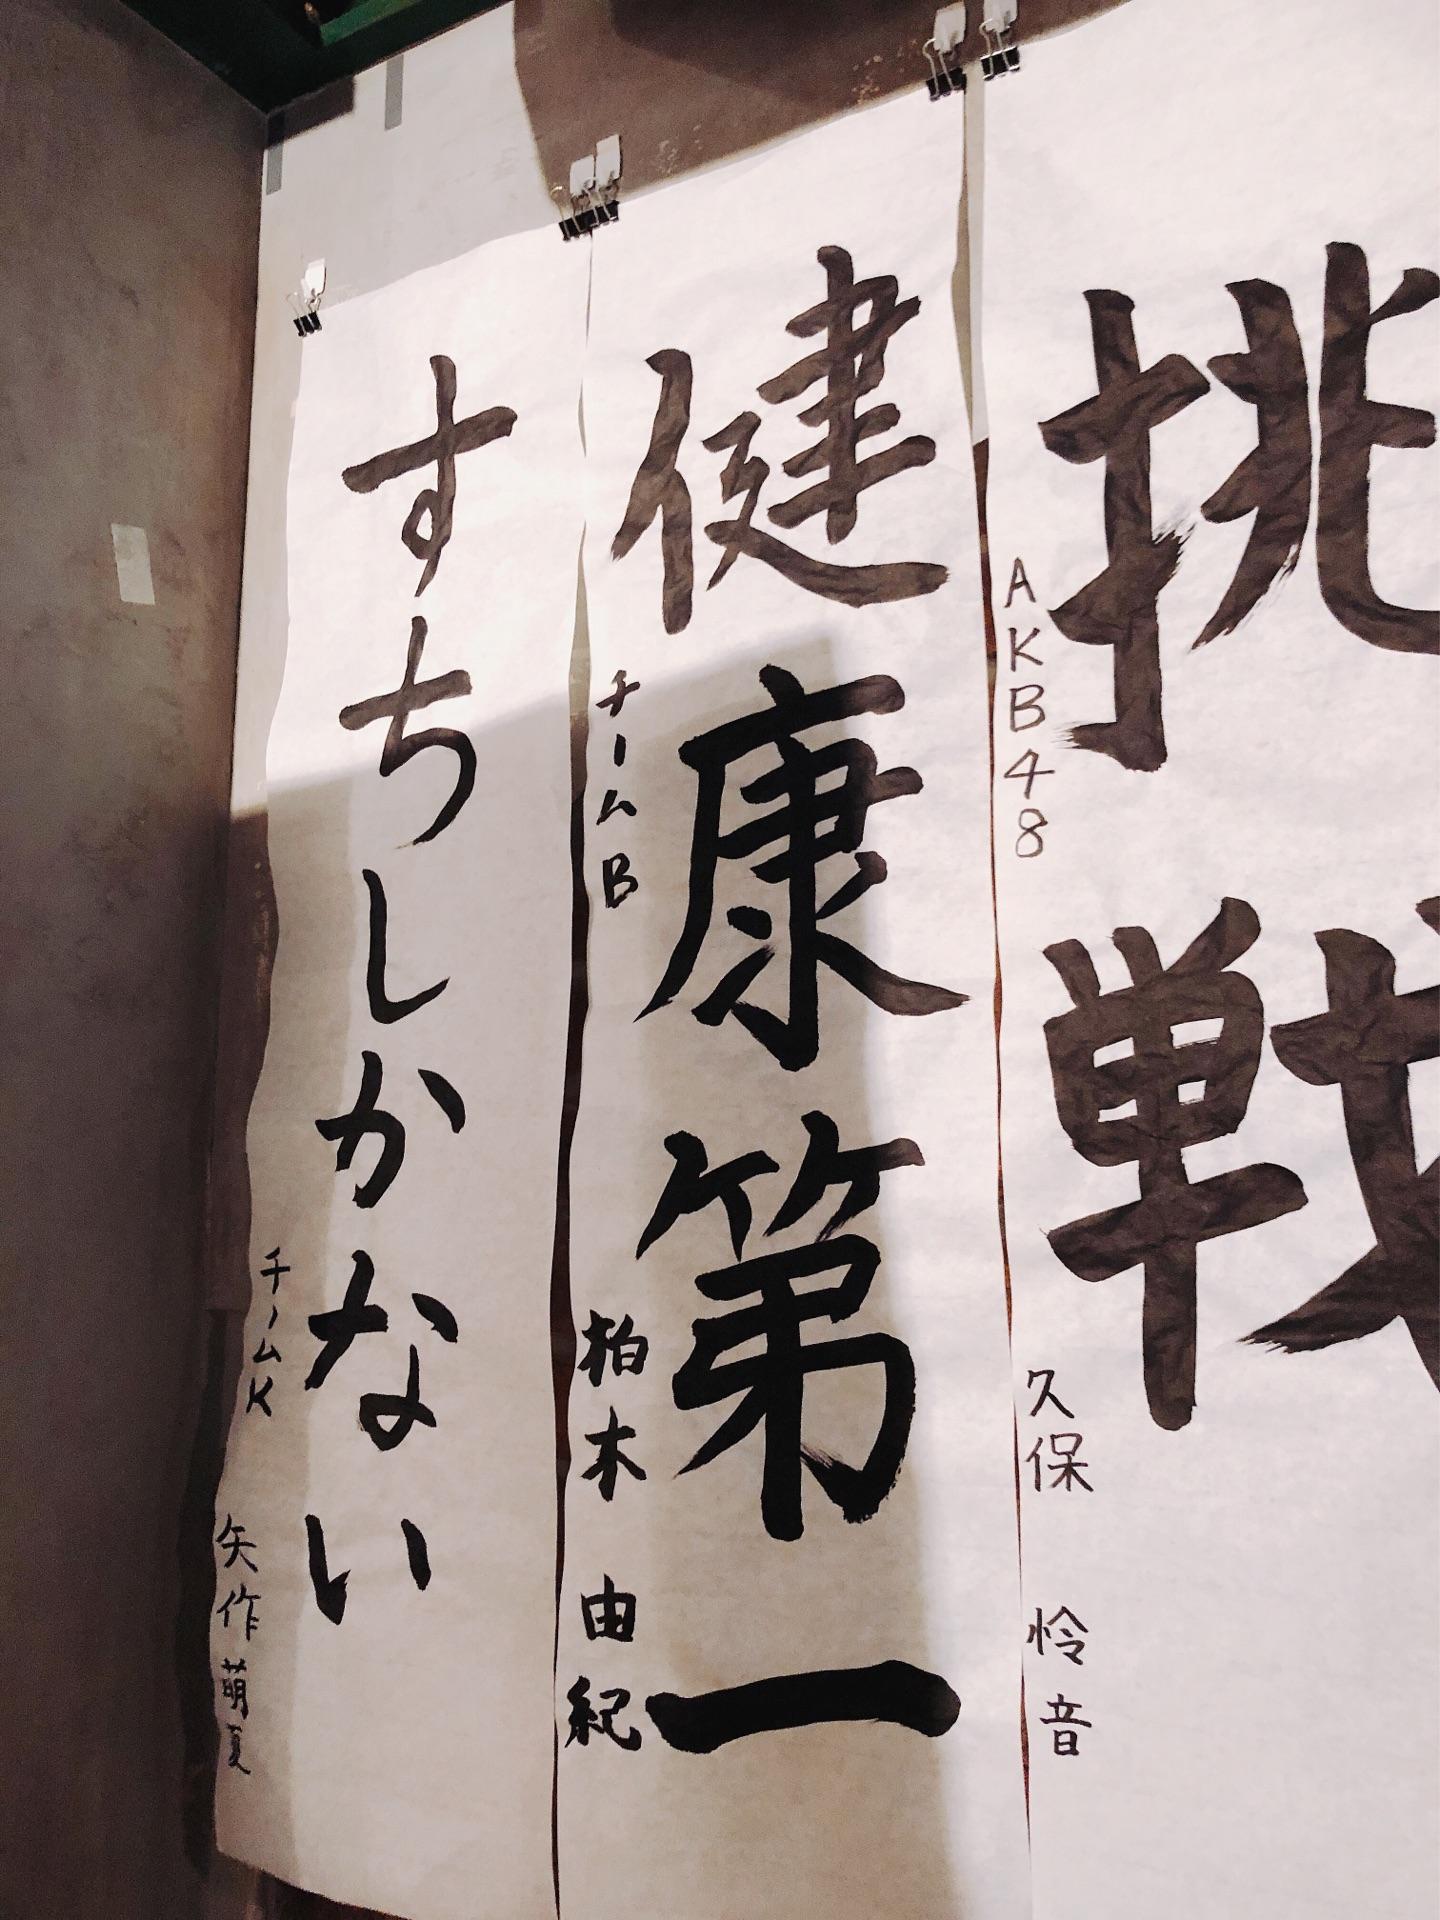 挑戦
AKB48
久保 怜音
健康第一
チームB
柏木 由紀
すちしかない
チームK
矢作萌夏